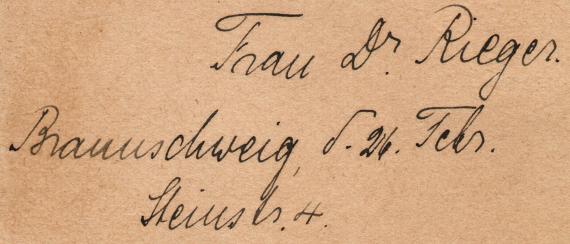 Frau Dr. Rieger.
Braunschweig, d. 26. Febr.
Steinstr. 4.